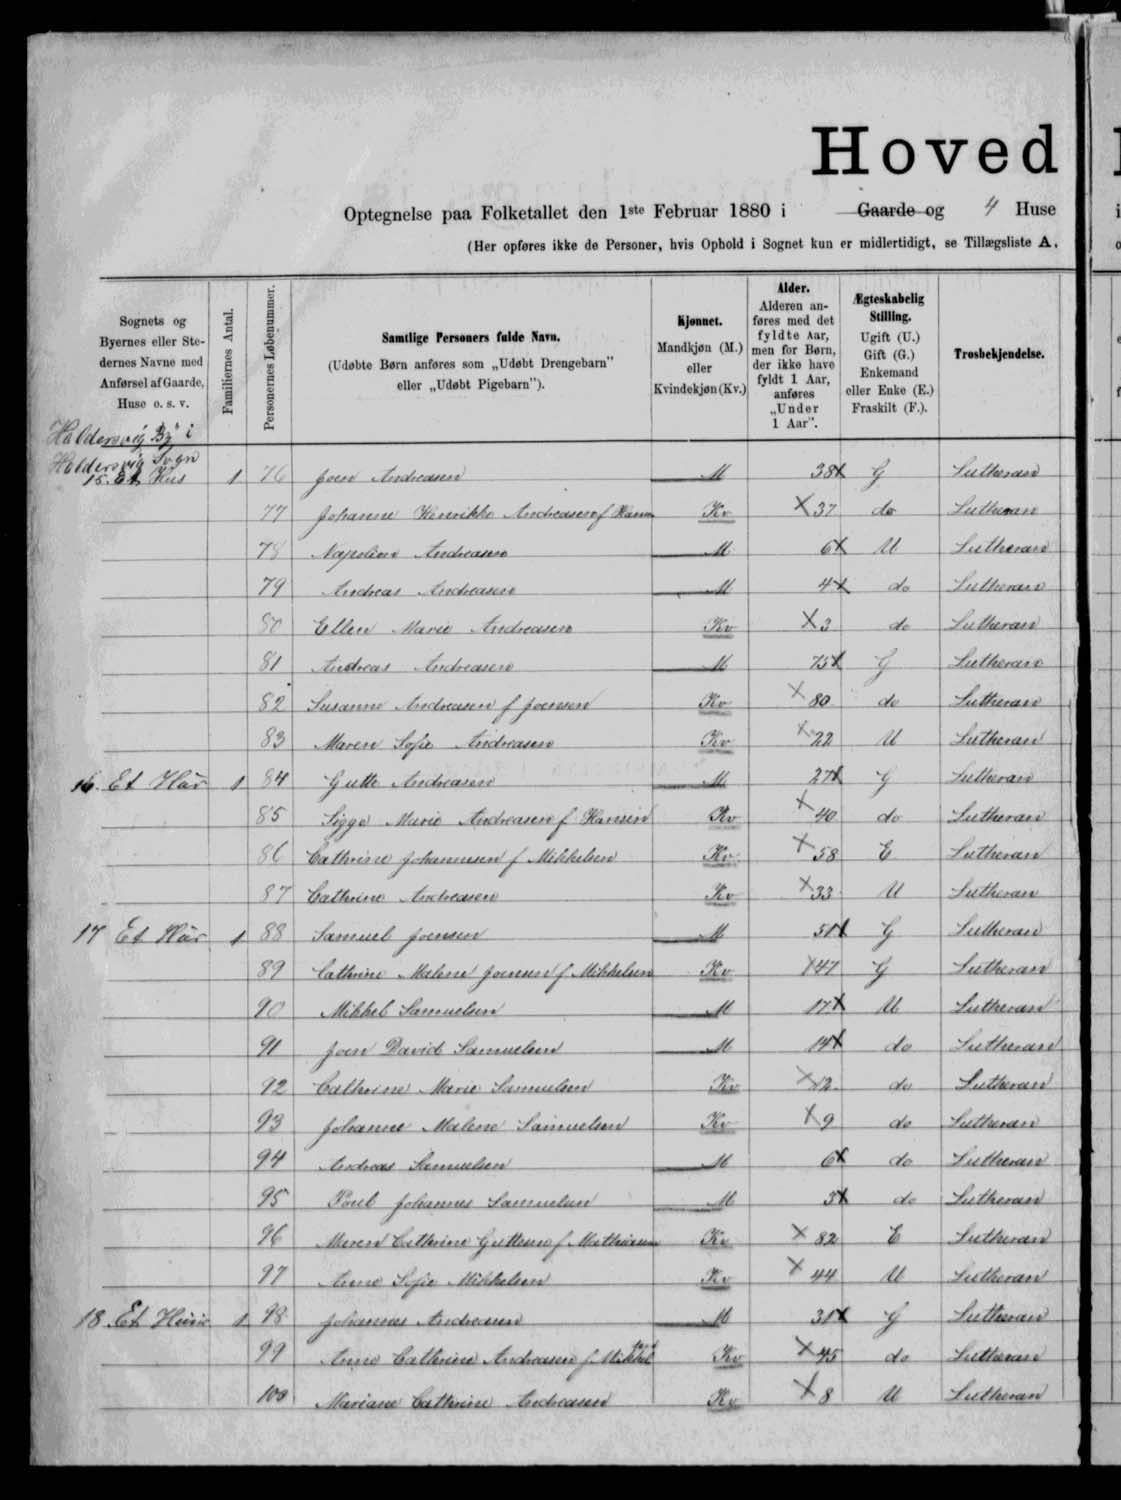 Hoved
Optegnelse paa Folketallet den 1ste Februar 1880 i Gaarde og 4 Huse
(Her opføres ikke de Personer, hvis Ophold i Sognet kun er midlertidigt, se Tillægsliste A.
Sognets og Byernes eller Stedernes Navne med Anførsel af Gaarde, Huse o. s. v.
Familiernes Antal.
Personernes Løbenummer.
Samtlige Personers fulde Navn.
(Udøbte Børn anføres som „Udøbt Drengebarn" eller „Udøbt Pigebarn").
Kjønnet.
Mandkjøn (M.) eller Kvindekjøn (Kv.)
Alder.
Alderen anføres med det fyldte Aar, men for Børn, der ikke have fyldt 1 Aar, anføres „Under 1 Aar".
Ægteskabelig Stilling.
Ugift (U.) Gift (G.) Enkemand eller Enke (E.) Fraskilt (F.).
Trosbekjendelse.
Haldersvig By i
Haldersvig Sogn
15. Et Hus 1 76 Joen Andreasen M 38 G Lutheran
77 Johanne Henrikke Andreasen f Hansen Kv 37 do Lutheran
78 Napoleon Andreasen M 6 U Lutheran
79 Andreas Andreasen M 4 do Lutheran
80 Ellen Marie Andreasen Kv 3 do Lutheran
81 Andreas Andreasen M 75 G Lutheran
82 Susanne Andreasen f Joensen Kv 80 do Lutheran
83 Maren Sofie Andreasen Kv 22 U Lutheran
16. Et Hus 1 84 Gutte Andreasen M 27 G Lutheran
85 Sigge Marie Andreasen f Hansen Kv 40 do Lutheran
86 Cathrine Johannesen f Mikkelsen Kv 58 E Lutheran
87 Cathrine Andreasen Kv 33 U Lutheran
17 Et Hus 1 88 Samuel Joensen M 51 G Lutheran
89 Cathrine Malene Joensen f Mikkelsen Kv 47 G Lutheran
90 Mikkel Samuelsen M 17 U Lutheran
91 Joen David Samuelsen M 14 do Lutheran
92 Cathrine Marie Samuelsen Kv 12 do Lutheran
93 Johanne Malene Samuelsen Kv 9 do Lutheran
94 Andreas Samuelsen M 6 do Lutheran
95 Poul Johannes Samuelsen M 3 do Lutheran
96 Maren Cathrine Guttesen f Mathiasen Kv 82 E Lutheran
97 Anne Sofie Mikkelsen Kv 44 U Lutheran
18 Et Huus 1 98 Johannes Andreasen M 31 G Lutheran
99 Anne Cathrine Andreasen f Mikkel Kv 45 do Lutheran
100 Mariane Cathrine Andreasen Kv 8 U Lutheran